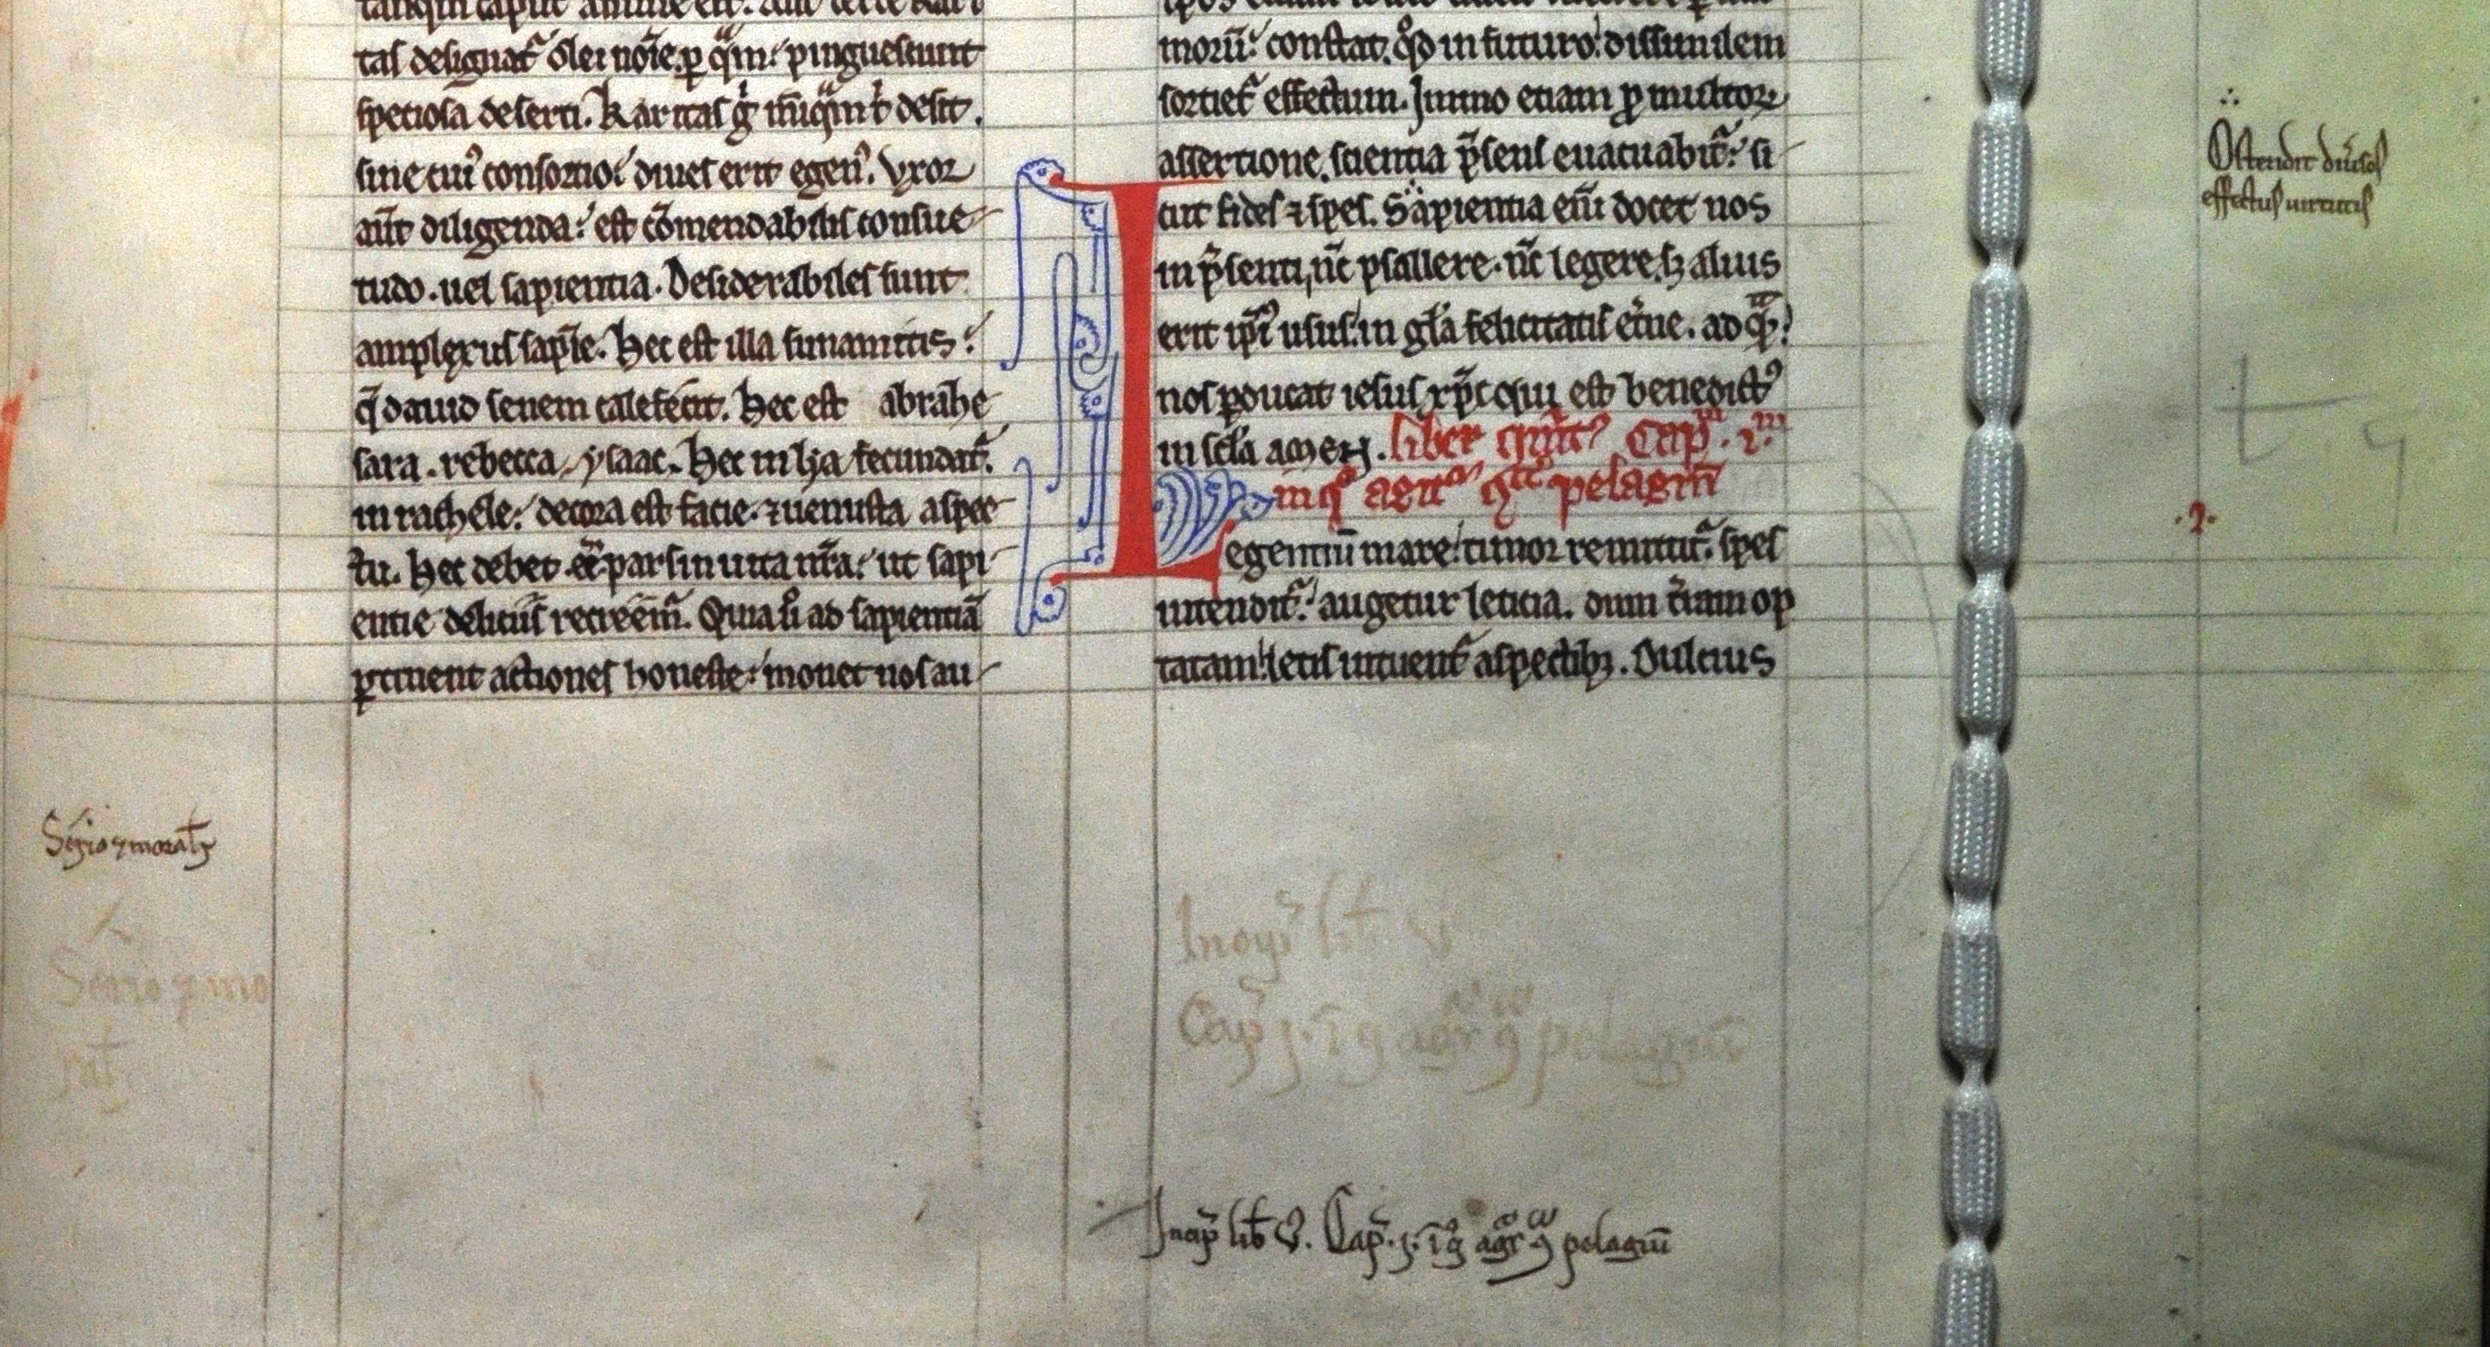 tas designat᷑ olei noīe. ꝑ qͣm pinguescunt
speciosa deserti. Karitas gͥ nūqͣm t̄ desit.
sine cuiꝰ consortio diues erit egenꝰ. Vxor
aūt diligenda: est cōmendabilis consue-
tudo. uel sapientia. Desiderabiles sunt
amplexus sapīe. Hec est illa sunamitis:
q̄ dauid senem calefecit. Hec est abrahe
sara. rebecca ysaac. Hec in lya fecundat᷑.
in rachele: decora est facie. ⁊ uenusta aspec-
tu. Hec debet eē pars in uita nr̄a: ut sapi-
entie deliciis recreem᷑. Quia uͦ ad sapientiā
ꝑtinent actiones honeste: monet nos au-
morū: constat. qͦd in futuro dissimilem
sortiet᷑ effectum. Immo etiam ꝓ multoꝝ
assertione. scientia p̄sens euacuabit᷑: si-
cut fides ⁊ spes. Sapientia eni̅ docet nos
in p̄senti, nc̄ psallere. nc̄ legere. sꝫ alius
erit ip̄iꝰ usus in gl̄a felicitatis et̄ne. ad qͣm
nos ꝑducat iesus xp̄c qui est benedictꝰ
in scl̄a amen. liber qͥntꝰ Capᵐ. iᵐ
in qͦ agit᷑ ꝯͭ pelagiū
Legentium mare: timor remittit᷑. spes
intendit᷑: augetur leticia. dum t̄ram op
tatam letis intuent᷑ aspectibꝫ. Dulcius
Ostendit diu̅sos
effectus uirtutis
t
.2.
Sermo ⁊ moralꝭ
Sermo ⁊ mo
ralꝭ
Incip̄ lib̄ V
Cap̄ j. ī q̊ agit᷑ ꝯ pelagiū
Incip̄ lib̄ V. Cap̄. j. ī q̊ agit᷑ ꝯ pelagiū